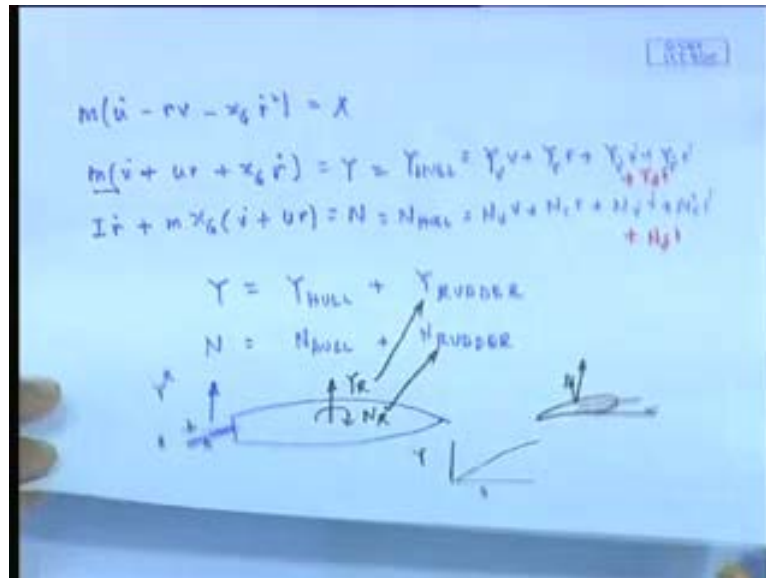 m(u̇ - rv - x_G ṙ²) = X
m(v̇ + ur + x_G ṙ) = Y = Y_HULL = Y_v v + Y_r r + Y_v̇ v̇ + Y_ṙ ṙ
+ Y_δ δ
Iṙ + m x_G (v̇ + ur) = N = N_HULL = N_v v + N_r r + N_v̇ v̇ + N_ṙ ṙ
+ N_δ δ
Y = Y_HULL + Y_RUDDER
N = N_HULL + N_RUDDER
Y_R
N_R
Y